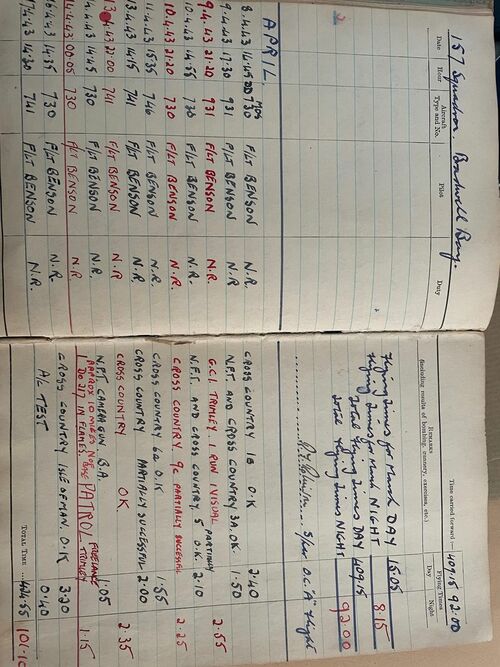 157 Squadron. Bradwell Bay.
Date Hour Aircraft Type and No. Pilot Duty
REMARKS
(including results of bombing, gunnery, exercises, etc.)
Flying Times
Day Night
Time carried forward :— 409.15 92.00
Flying Times for March DAY 15.05
Flying Times for March NIGHT 8.15
Total Flying Times DAY 409.15
Total Flying Times NIGHT 92.00
S/Ldr O.C. "A" Flight
APRIL.
MOS
8.4.43 14.45 DD730 F/LT BENSON N.R. CROSS COUNTRY 1B O.K 2.40
9.4.43 17.30 931 F/LT BENSON N.R. N.F.T. AND CROSS COUNTRY 3A. O.K. 1.50
9.4.43 21.20 931 F/LT BENSON N.R. G.C.I. TRIMLEY 1 RUN 1 VISUAL 2.55
10.4.43 14.55 730 F/LT BENSON N.R. N.F.T. AND CROSS COUNTRY. 5 PARTIALLY O.K. 2.10
10.4.43 21.20 730 F/LT BENSON N.R. CROSS COUNTRY 9c PARTIALLY SUCCESSFUL 2.25
11.4.43 15.35 746 F/LT BENSON N.R. CROSS COUNTRY 6a O.K 1.55
13.4.43 14.15 741 F/LT BENSON N.R. CROSS COUNTRY PARTIALLY SUCCESSFUL 2.00
13.4.43 21.00 741 F/LT BENSON N.R CROSS COUNTRY OK 2.35
14.4.43 14.45 730 F/LT BENSON N.R. N.F.T. CAMERA GUN. B.A. 1.05
14.4.43 00.05 730 F/LT BENSON N.R 1 DO 217 IN FLAMES, PATROL FREELANCE TRIMLEY 1.15
APPROX 10 MILES
16.4.43 14.35 730 F/LT BENSON N.R. CROSS COUNTRY ISLE OF MAN. O.K 3.20
17.4.43 14.30 741 F/LT BENSON N.R. A/C TEST 0.40
TOTAL TIME